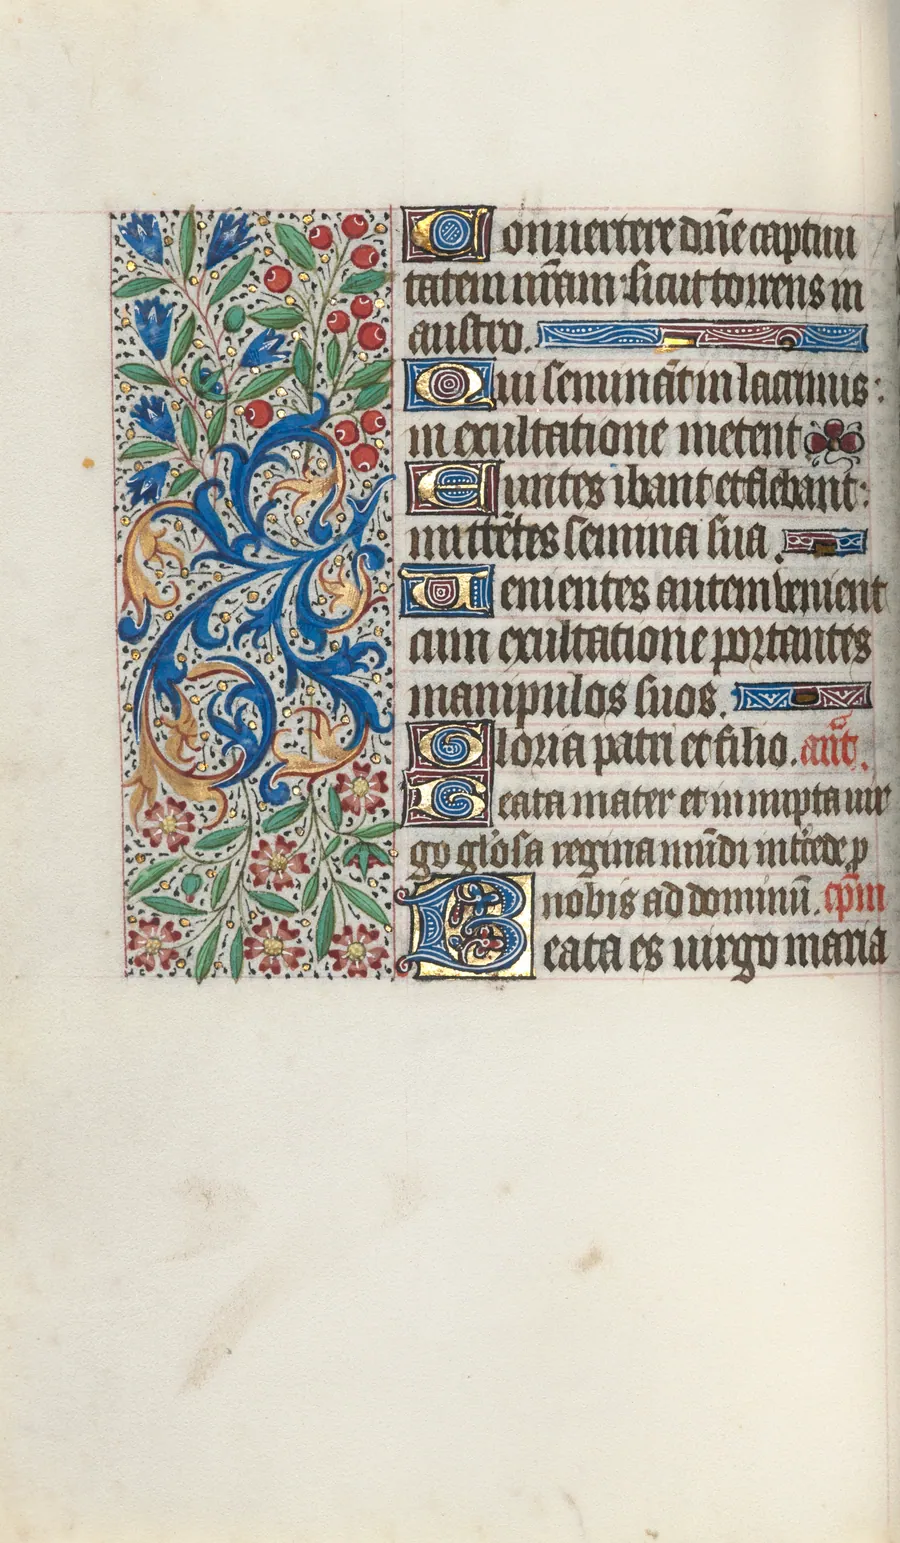 Conuertere dn̄e captiui
tatem nr̄am sicut torrens in
austro.
Qui semināt in lacrimis:
in exultatione metent
Euntes ibant et flebant:
mittētes semina sua.
Uenientes autem venient
cum exultatione portantes
manipulos suos.
Gloria patri et filio. ant̄.
Beata mater et innupta uir
go glōsa regina mūdi int̄cede ꝑ
nobis ad dominū. cpm̄
Beata es uirgo maria